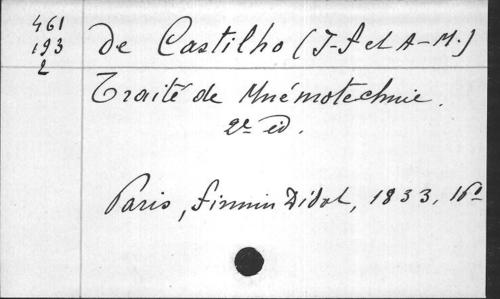 461
193
2
de Castilho (J-F et A-M.)
Traité de Mnémotechnie.
2e éd.
Paris, Firmin Didot, 1833, 16°